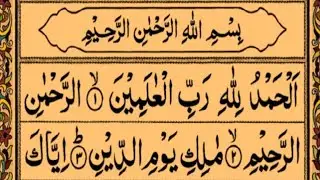 بِسْمِ اللهِ الرَّحْمٰنِ الرَّحِيْمِ
اَلْحَمْدُ لِلّٰهِ رَبِّ الْعٰلَمِيْنَ ۙ﴿۱﴾ الرَّحْمٰنِ
الرَّحِيْمِ ۙ﴿۲﴾ مٰلِكِ يَوْمِ الدِّيْنِ ؕ﴿۳﴾ اِيَّاكَ